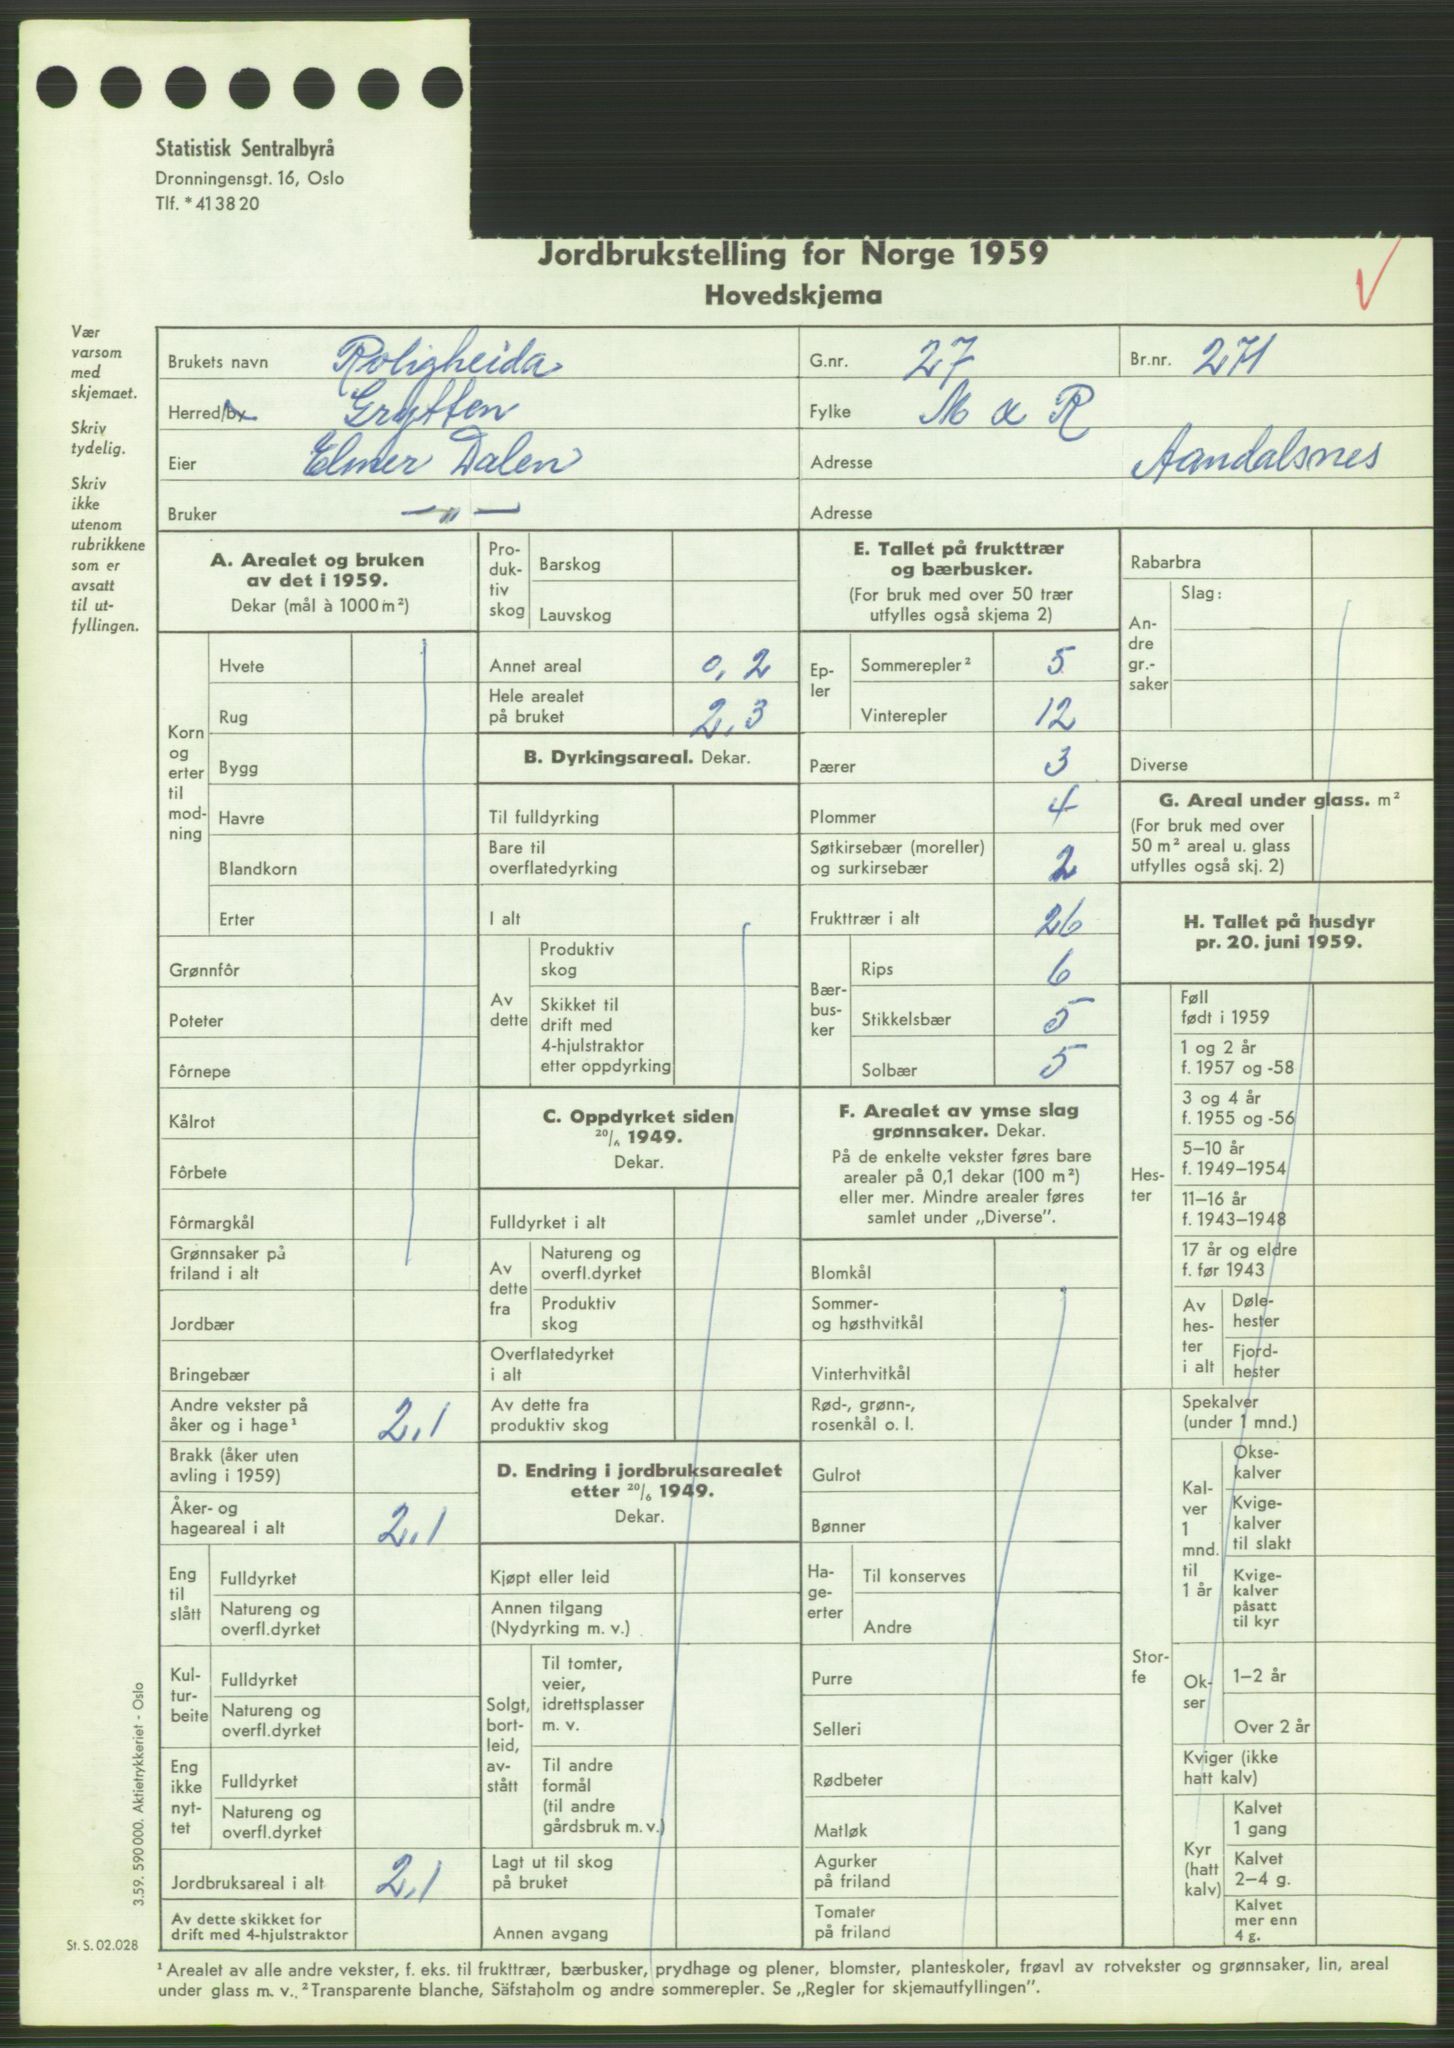 Statistisk Sentralbyrå
Dronningensgt. 16, Oslo
Tlf. * 41 38 20
Jordbrukstelling for Norge 1959
Hovedskjema
Vær
varsom
med
skjemaet.
Skriv
tydelig.
Skriv
ikke
utenom
rubrikkene
som er
avsatt
til ut-
fyllingen.
Brukets navn Roligheida G.nr. 27 Br.nr. 271
Herred/by Grytten Fylke M & R
Eier Elmer Dalen Adresse Aandalsnes
Bruker — " — Adresse
A. Arealet og bruken
av det i 1959.
Dekar (mål à 1000 m²)
Korn
og
erter
til
mod-
ning
Hvete
Rug
Bygg
Havre
Blandkorn
Erter
Grønnfôr
Poteter
Fôrnepe
Kålrot
Fôrbete
Fôrmargkål
Grønnsaker på
friland i alt
Jordbær
Bringebær
Andre vekster på
åker og i hage¹ 2,1
Brakk (åker uten
avling i 1959)
Åker- og
hageareal i alt 2,1
Eng
til
slått
Fulldyrket
Natureng og
overfl.dyrket
Kul-
tur-
beite
Fulldyrket
Natureng og
overfl.dyrket
Eng
ikke
nyt-
tet
Fulldyrket
Natureng og
overfl.dyrket
Jordbruksareal i alt 2,1
Av dette skikket for
drift med 4-hjulstraktor
Pro-
duk-
tiv
skog
Barskog
Lauvskog
Annet areal 0,2
Hele arealet
på bruket 2,3
B. Dyrkingsareal. Dekar.
Til fulldyrking
Bare til
overflatedyrking
I alt
Av
dette
Produktiv
skog
Skikket til
drift med
4-hjulstraktor
etter oppdyrking
C. Oppdyrket siden
20/6 1949.
Dekar.
Fulldyrket i alt
Av
dette
fra
Natureng og
overfl.dyrket
Produktiv
skog
Overflatedyrket
i alt
Av dette fra
produktiv skog
D. Endring i jordbruksarealet
etter 20/6 1949.
Dekar.
Kjøpt eller leid
Annen tilgang
(Nydyrking m. v.)
Solgt,
bort-
leid,
av-
stått
Til tomter,
veier,
idrettsplasser
m. v.
Til andre
formål
(til andre
gårdsbruk m. v.)
Lagt ut til skog
på bruket
Annen avgang
E. Tallet på frukttrær
og bærbusker.
(For bruk med over 50 trær
utfylles også skjema 2)
Ep-
ler
Sommerepler² 5
Vinterepler 12
Pærer 3
Plommer 4
Søtkirsebær (moreller)
og surkirsebær 2
Frukttrær i alt 26
Bær-
bus-
ker
Rips 6
Stikkelsbær 5
Solbær 5
F. Arealet av ymse slag
grønnsaker. Dekar.
På de enkelte vekster føres bare
arealer på 0,1 dekar (100 m²)
eller mer. Mindre arealer føres
samlet under „Diverse”.
Blomkål
Sommer-
og høsthvitkål
Vinterhvitkål
Rød-, grønn-,
rosenkål o. l.
Gulrot
Bønner
Ha-
ge-
erter
Til konserves
Andre
Purre
Selleri
Rødbeter
Matløk
Agurker
på friland
Tomater
på friland
Rabarbra
An-
dre
gr.-
saker
Slag:
Diverse
G. Areal under glass. m²
(For bruk med over
50 m² areal u. glass
utfylles også skj. 2)
H. Tallet på husdyr
pr. 20. juni 1959.
Hes-
ter
Føll
født i 1959
1 og 2 år
f. 1957 og -58
3 og 4 år
f. 1955 og -56
5–10 år
f. 1949–1954
11–16 år
f. 1943–1948
17 år og eldre
f. før 1943
Av
hes-
ter
i alt
Døle-
hester
Fjord-
hester
Stor-
fe
Spekalver
(under 1 mnd.)
Kal-
ver
1
mnd.
til
1 år
Okse-
kalver
Kvige-
kalver
til slakt
Kvige-
kalver
påsatt
til kyr
Ok-
ser
1–2 år
Over 2 år
Kviger (ikke
hatt kalv)
Kyr
(hatt
kalv)
Kalvet
1 gang
Kalvet
2–4 g.
Kalvet
mer enn
4 g.
3.59. 590 000. Aktietrykkeriet - Oslo
St. S. 02.028
¹ Arealet av alle andre vekster, f. eks. til frukttrær, bærbusker, prydhage og plener, blomster, planteskoler, frøavl av rotvekster og grønnsaker, lin, areal
under glass m. v. ² Transparente blanche, Säfstaholm og andre sommerepler. Se „Regler for skjemautfyllingen”.